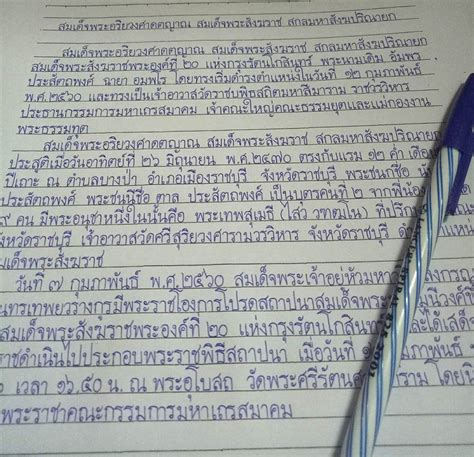 สมเด็จพระอริยวงศาคตญาณ สมเด็จพระสังฆราช สกลมหาสังฆปริณายก
สมเด็จพระอริยวงศาคตญาณ สมเด็จพระสังฆราช สกลมหาสังฆปริณายก
สมเด็จพระสังฆราชพระองค์ที่ ๒๐ แห่งกรุงรัตนโกสินทร์ พระนามเดิม อัมพร
ประสัตถพงศ์ ฉายา อมฺพโร โดยทรงเริ่มดำรงตำแหน่งในวันที่ ๑๒ กุมภาพันธ์
พ.ศ.๒๕๖๐ และทรงเป็นเจ้าอาวาสวัดราชบพิธสถิตมหาสีมาราม ราชวรวิหาร
ประธานกรรมการมหาเถรสมาคม เจ้าคณะใหญ่คณะธรรมยุตและแม่กองงาน
พระธรรมทูต
สมเด็จพระอริยวงศาคตญาณ สมเด็จพระสังฆราช สกลมหาสังฆปริณายก
ประสูติเมื่อวันอาทิตย์ที่ ๒๖ มิถุนายน พ.ศ.๒๔๗๐ ตรงกับแรม ๑๒ ค่ำ เดือน
ปีเถาะ ณ ตำบลบางป่า อำเภอเมืองราชบุรี จังหวัดราชบุรี พระชนกชื่อ นับ
ประสัตถพงศ์ พระชนนีชื่อ ตาล ประสัตถพงศ์ เป็นบุตรคนที่ ๒ จากพี่น้อง
๙ คน มีพระอนุชาหนึ่งในนั้นคือ พระเทพสุเมธี (ไสว วฑฺฒโน) ที่ปรึกษา
จังหวัดราชบุรี เจ้าอาวาสวัดศรีสุริยวงศารามวรวิหาร จังหวัดราชบุรี
สมเด็จพระสังฆราช
วันที่ ๗ กุมภาพันธ์ พ.ศ.๒๕๖๐ สมเด็จพระเจ้าอยู่หัวมหาวชิราลงกรณ
บดินทรเทพยวรางกูรมีพระราชโองการโปรดสถาปนาสมเด็จพระมหามุนีวงศ์
สมเด็จพระสังฆราชพระองค์ที่ ๒๐ แห่งกรุงรัตนโกสินทร์ และได้เสด็จ
ราชดำเนินไปประกอบพระราชพิธีสถาปนา เมื่อวันที่ ๑๒ กุมภาพันธ์
๐ เวลา ๑๖.๕๐ น. ณ พระอุโบสถ วัดพระศรีรัตนศาสดาราม โดยมี
พระราชาคณะกรรมการมหาเถรสมาคม